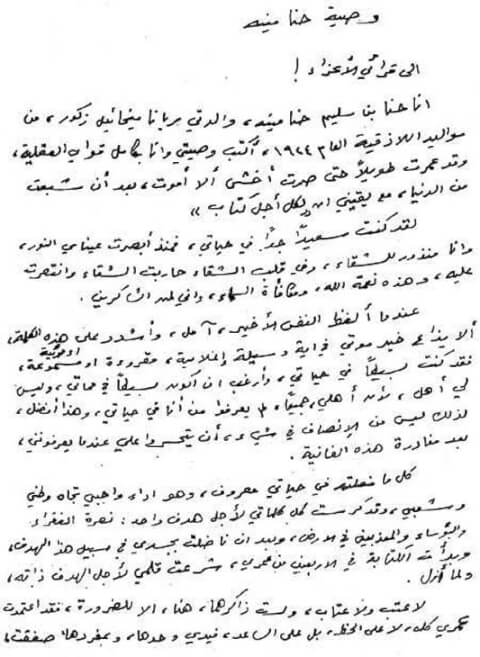 وصية حنا مينه
الى قرائي الأعزاء!
انا حنا بن سليم حنا مينه، والدتي مريانا ميخائيل زكور، من
مواليد اللاذقية العام ١٩٢٤، أكتب وصيتي وانا بكامل قواي العقلية،
وقد عمرت طويلاً حتى صرت أخشى ألا أموت، بعد أن شبعت
من الدنيا، مع يقيني انه «لكل أجل كتاب»
لقد كنت سعيداً جداً في حياتي، فمنذ أبصرت عيناي النور،
وانا منذور للشقاء، وفي قلب الشقاء حاربت الشقاء وانتصرت
عليه، وهذه نعمة الله، ومكافأة السماء، واني لمن الشاكرين.
عندما ألفظ النفس الأخير، آمل، وأشدد على هذه الكلمة،
ألا يذاع خبر موتي في أية وسيلة إعلامية، مقروءة او مسموعة او مرئية،
فقد كنت بسيطاً في حياتي، وأرغب ان أكون بسيطاً في مماتي، وليس
لي أهل، لأن أهلي، جميعاً، لم يعرفوا من أنا في حياتي، وهذا أفضل،
لذلك ليس من الإنصاف في شيء، أن يتحسروا علي عندما يعرفونني،
بعد مغادرة هذه الفانية.
كل ما فعلته في حياتي معروف، وهو اداء واجبي تجاه وطني
وشعبي، وقد كرست كل كلماتي لأجل هدف واحد: نصرة الفقراء
والبؤساء والمعذبين في الارض، وبعد ان ناضلت بجسدي في سبيل هذا الهدف،
وبدأت الكتابة في الاربعين من عمري، شرعت قلمي لأجل الهدف ذاته،
ولما أزل.
لا عتب ولا عتاب، ولست ذاكرها، هنا، الا للضرورة، فقد اعتمدت
عمري كله، لا على الحظ، بل على الساعد، فيدي وحدها، وبمفردها، صفقت،